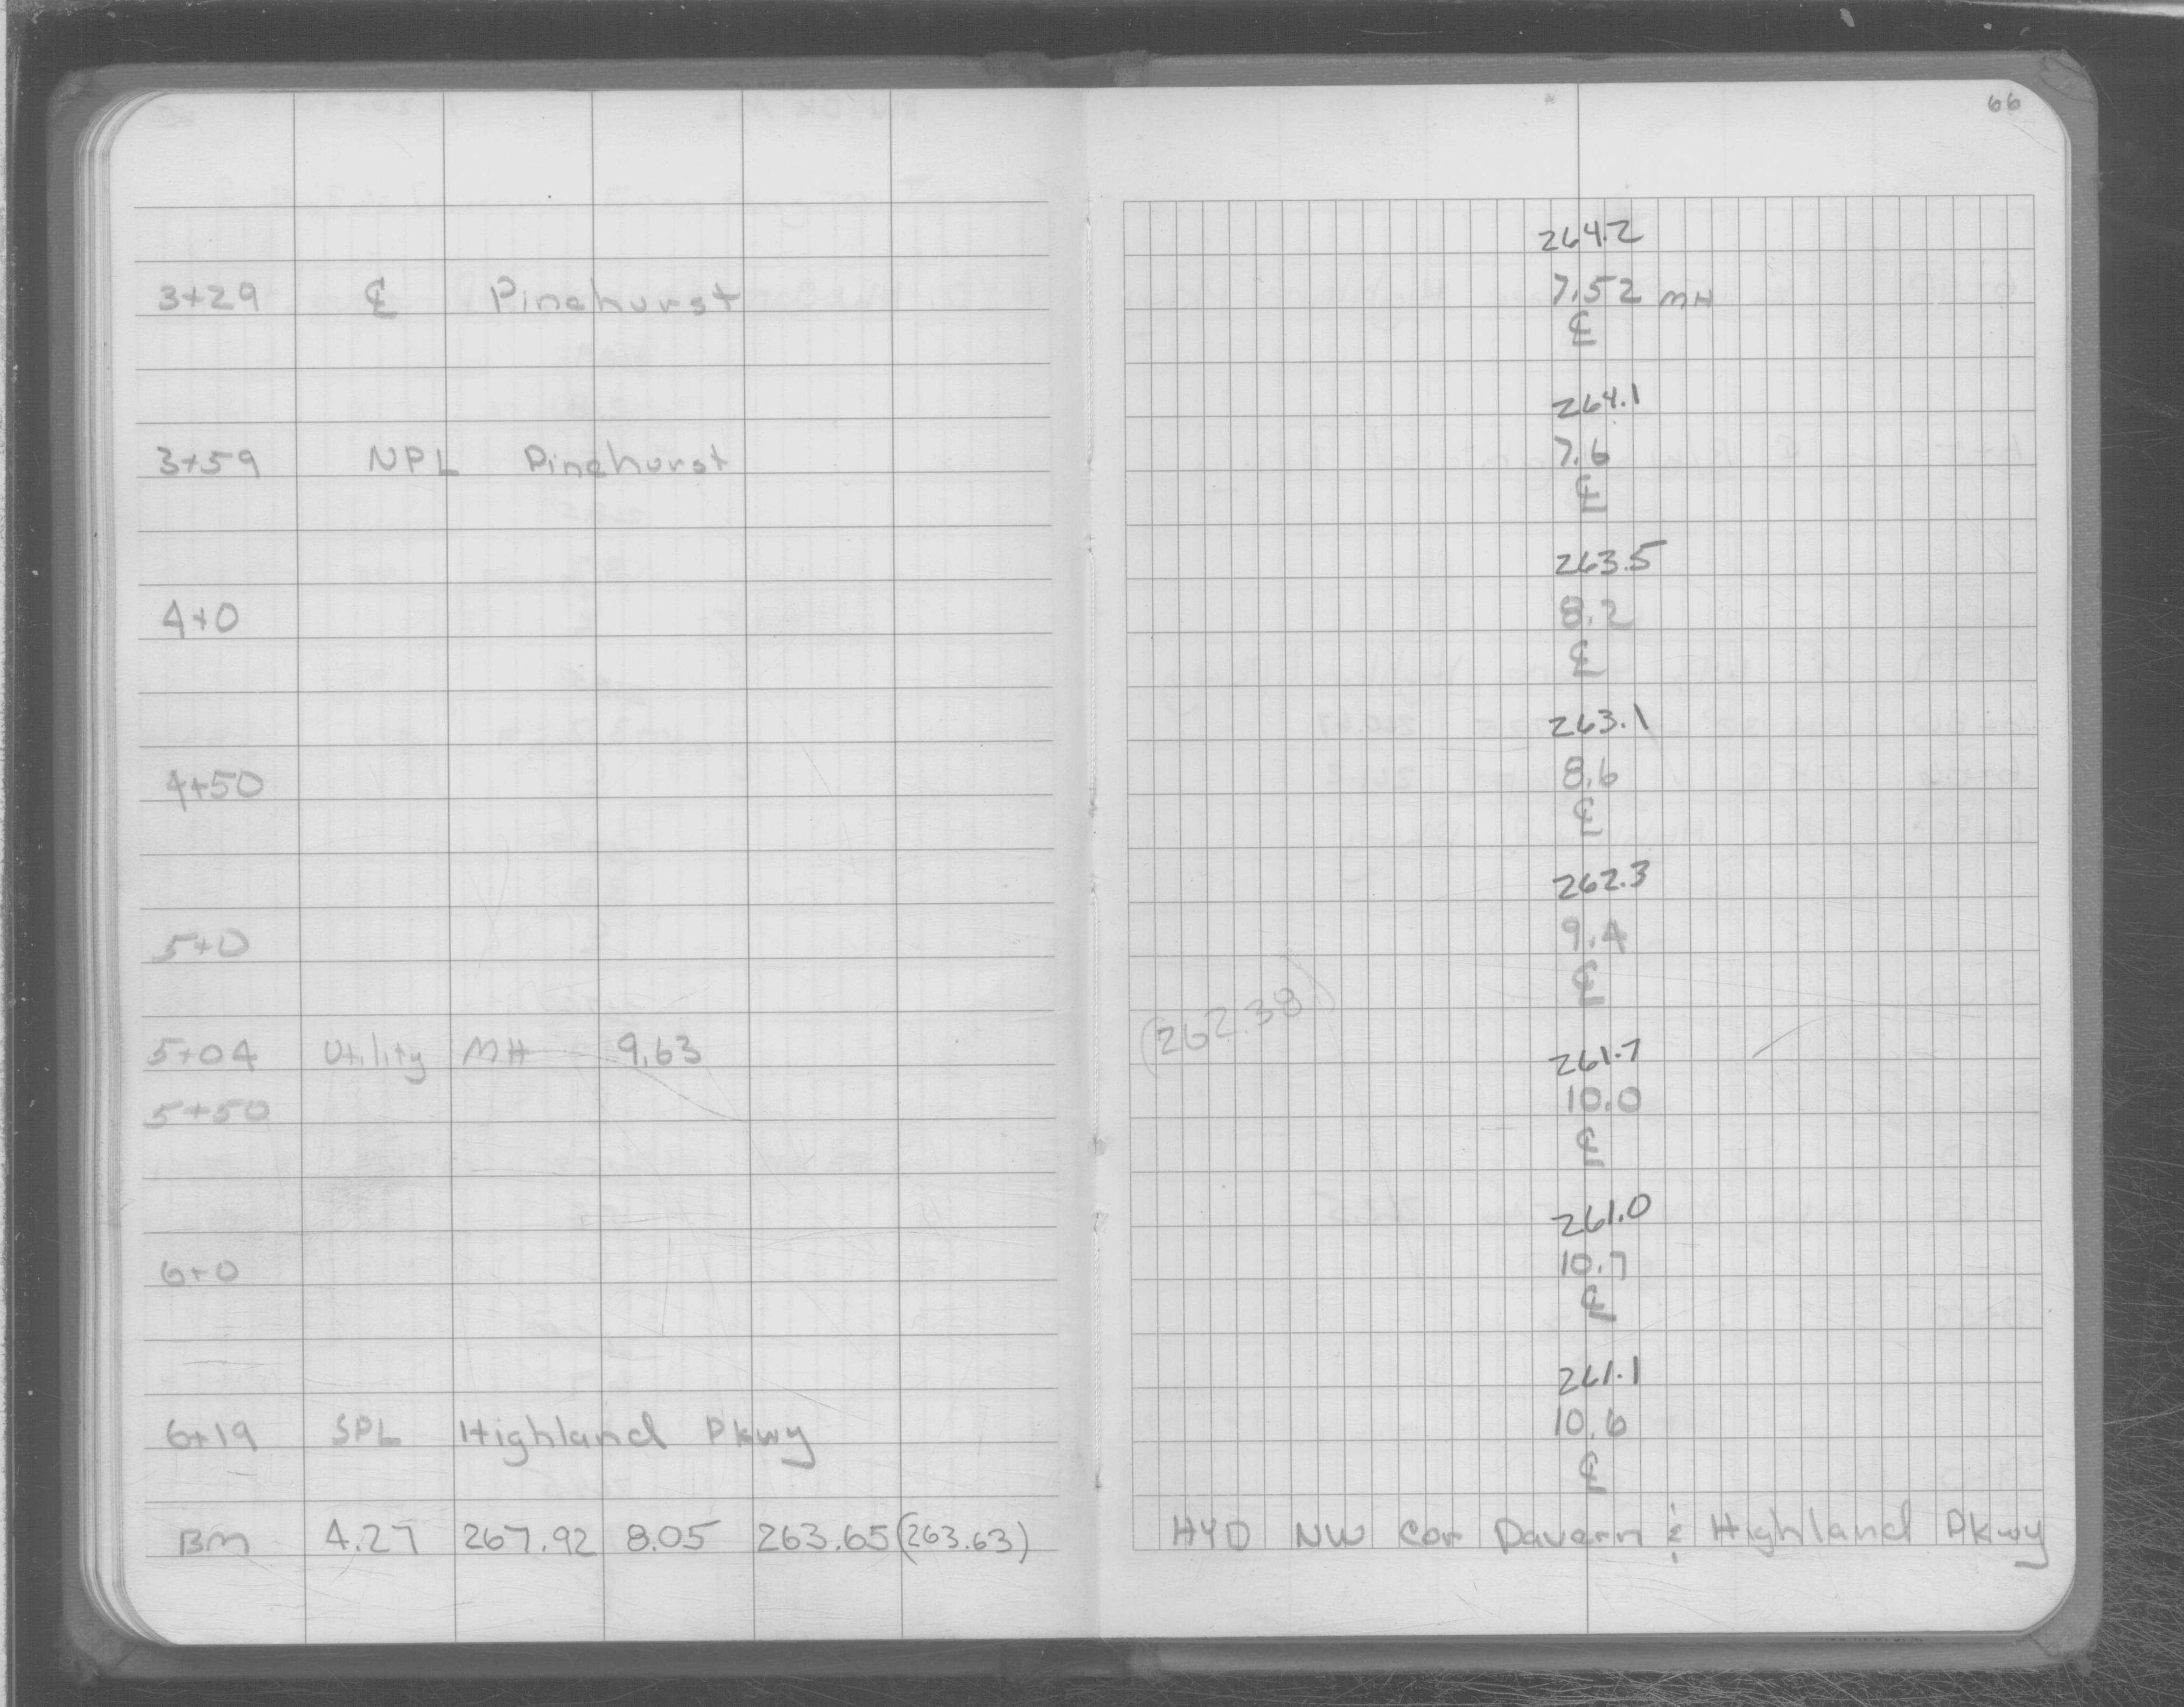 66
264.2
3+29 ℄ Pinehurst 7.52 MH
℄
264.1
3+59 NPL Pinehurst 7.6
℄
263.5
4+0 8.2
℄
263.1
4+50 8.6
℄
262.3
5+0 9.4
℄
5+04 Utility MH 9.63 (262.38) 261.7
5+50 10.0
℄
261.0
6+0 10.7
℄
261.1
6+19 SPL Highland Pkwy 10.6
℄
BM 4.27 267.92 8.05 263.65 (263.63) HYD NW Cor Davern & Highland Pkwy